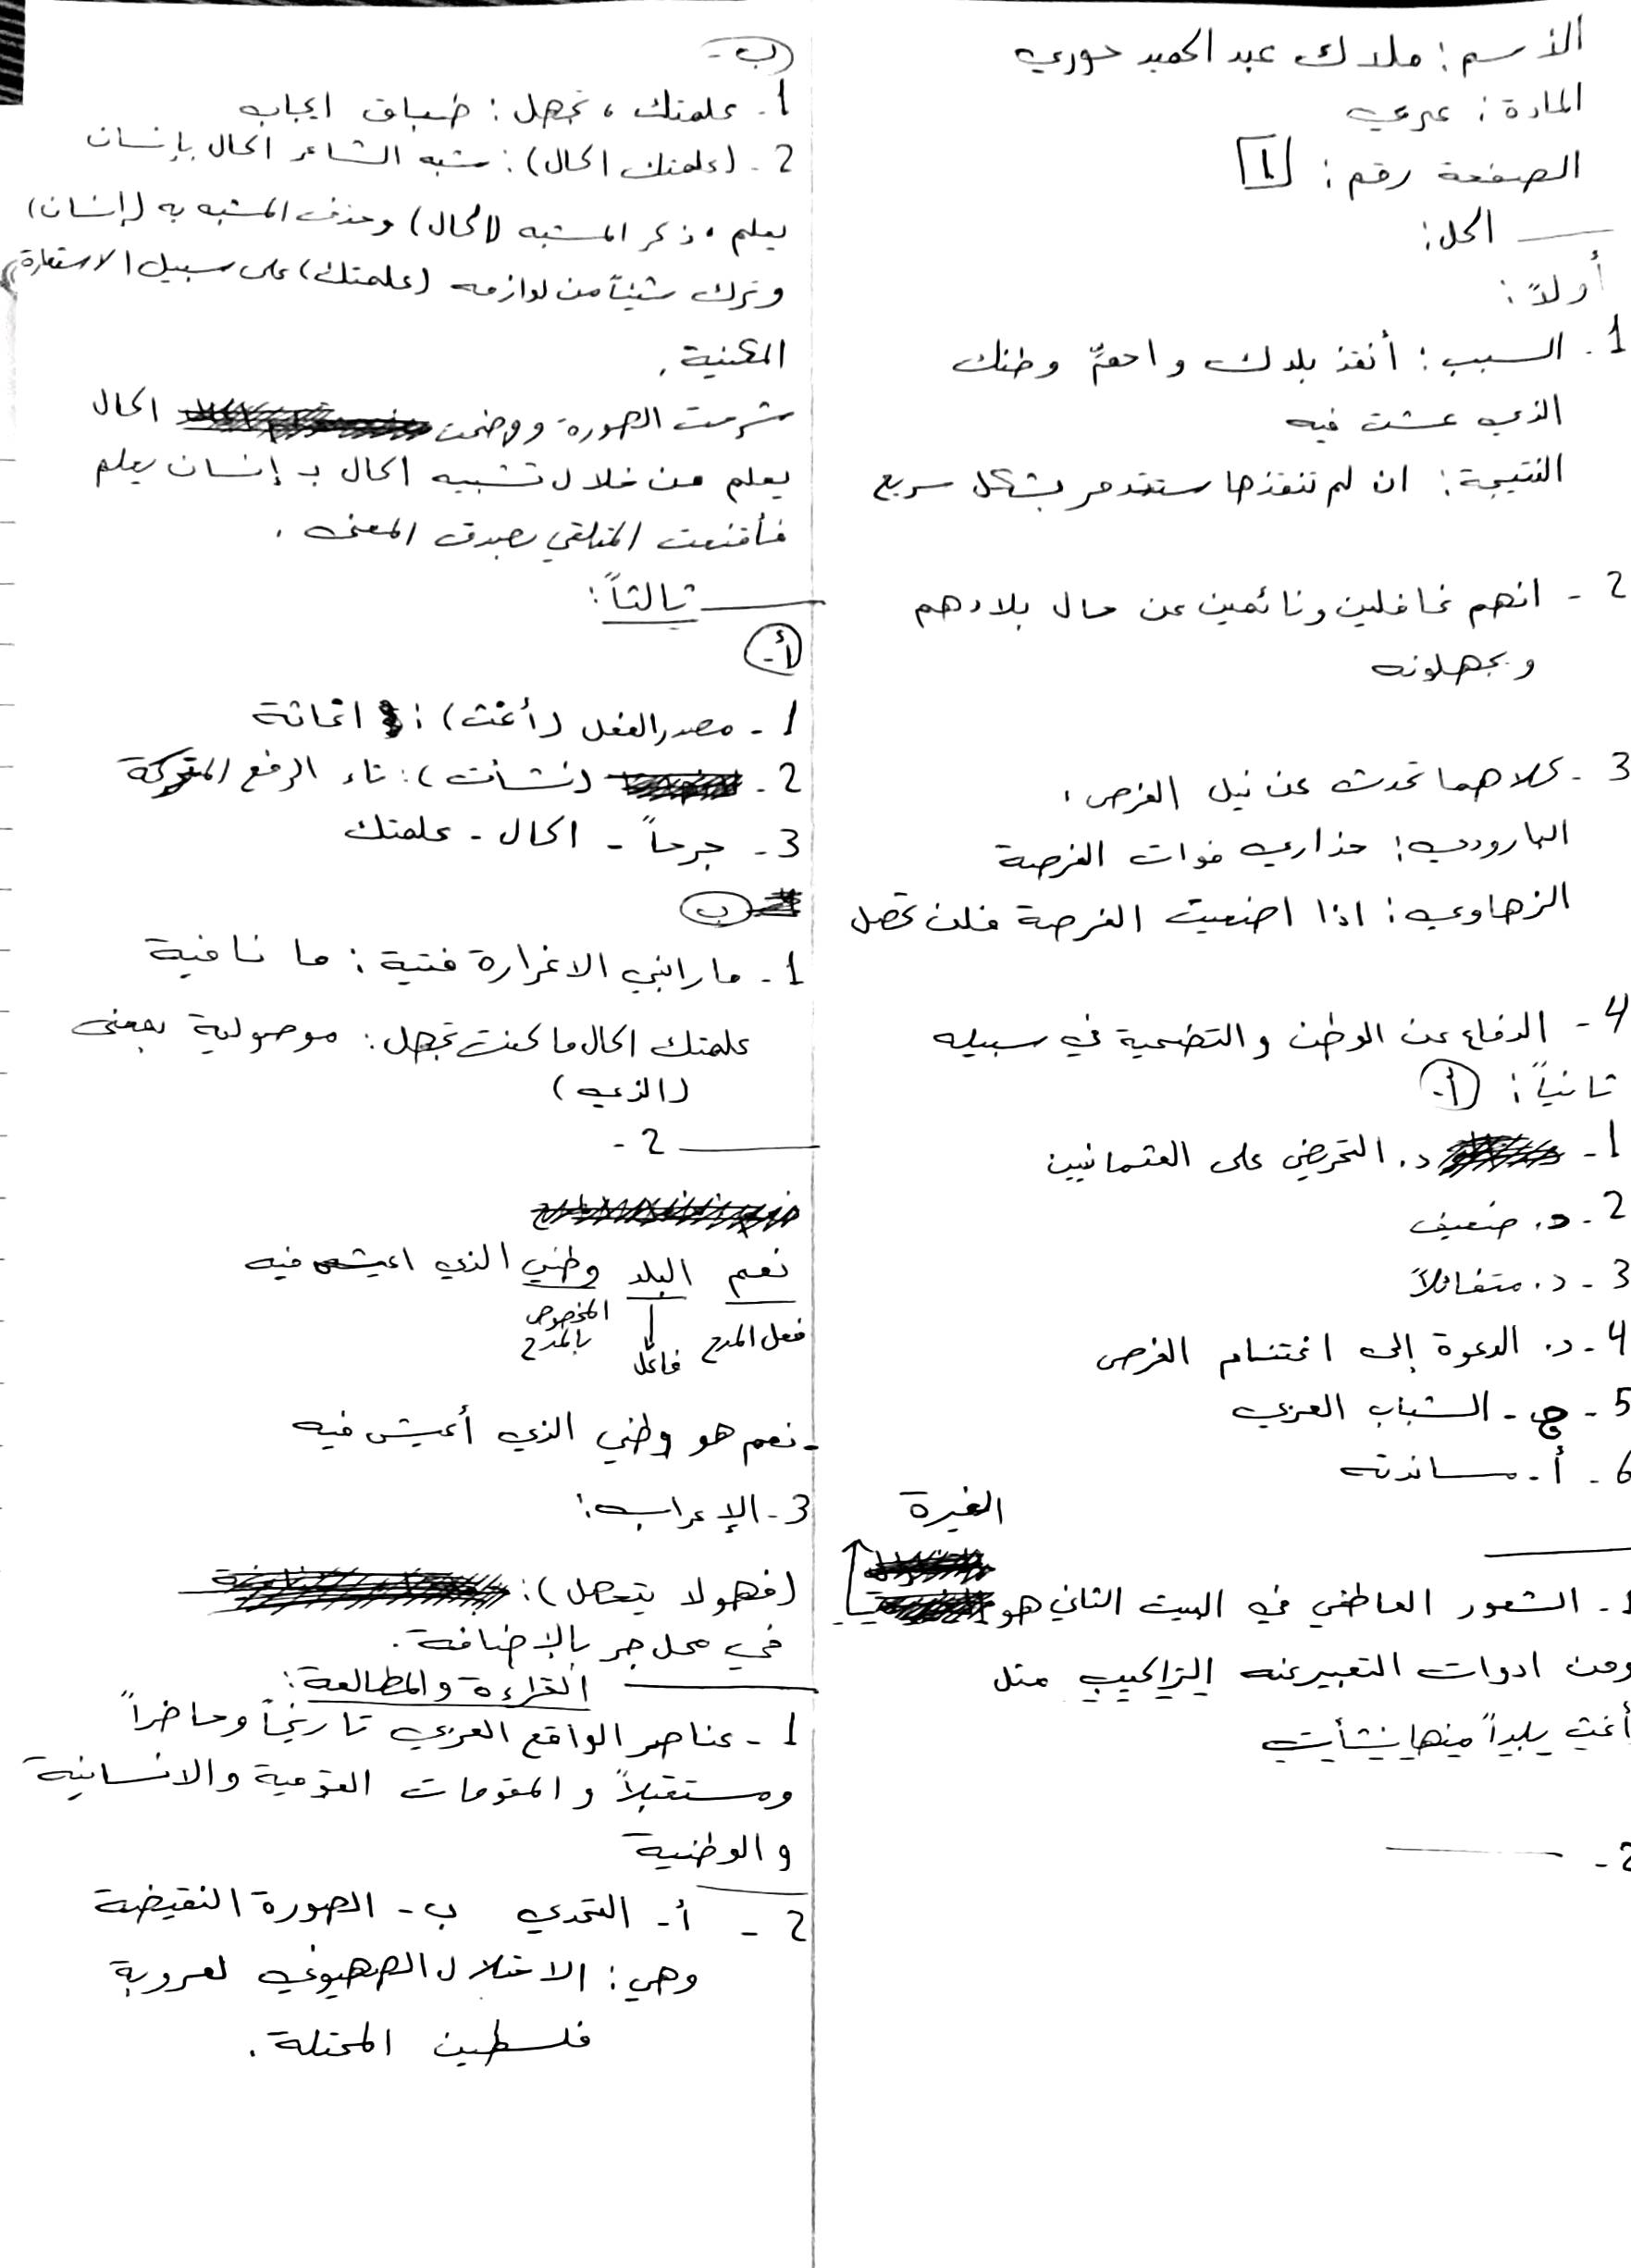 الاسم: ملاك عبد الحميد حوري
المادة: عربي
الصفحة رقم: 1
الحل:
أولاً:
1. السبب: أنقذ بلدك واحمِ وطنك
الذي عشت فيه
النتيجة: ان لم تنقذها ستتدمر بشكل سريع
2 - انهم غافلين ونائمين عن حال بلادهم
ويجهلونه
3 - كلاهما تحدث عن نيل الفرص،
البارودي: حذاري فوات الفرصة
الزهاوي: اذا اضعيت الفرصة فلن تحصل
4 - الدفاع عن الوطن والتضحية في سبيله
ثانياً: أ-
1 - د. التحريض على العثمانيين
2 - د. ضعيف
3 - د. متفائلاً
4 - د. الدعوة إلى اغتنام الفرص
5 - ج - الشباب العربي
6 - أ. مساندته
الغيرة
1 - الشعور العاطفي في البيت الثاني هو
ومن ادوات التعبير عنه التراكيب مثل
أغث بلداً منها نشأت
2 -
ب -
1 - علمتك، تجهل: طباق ايجاب
2 - (علمتك الحال): شبه الشاعر الحال بإنسان
يعلم، ذكر المشبه (الحال) وحذف المشبه به (إنسان)
وترك شيئاً من لوازمه (علمتك) على سبيل الاستعارة
المكنية.
شرحت الصورة ووضحت الحال
يعلم من خلال تشبيه الحال بـ إنسان يعلم
فأقنعت المتلقي بصدق المعنى.
ثالثاً:
أ-
1 - مصدر الفعل (أغث): اغاثة
2 - (نشأت): تاء الرفع المتحركة
3 - جرحاً - الحال - علمتك
ب
1 - ما رابني الا غرارة فتية: ما نافية
علمتك الحال ما كنت تجهل: موصولية بمعنى
(الذي)
2 -
نعم البلد وطني الذي اعيش فيه
فعل المدح فاعل المخصوص بالمدح
- نعم هو وطني الذي أعيش فيه
3 - الإعراب:
(فهو لا يتمهل):
في محل جر بالإضافة.
القراءة والمطالعة:
1 - عناصر الواقع العربي تاريخاً وحاضراً
ومستقبلاً والمقومات القومية والانسانية
والوطنية
2 - أ- التحدي ب- الصورة النقيضة
وهي: الاحتلال الصهيوني لعروبة
فلسطين المحتلة.